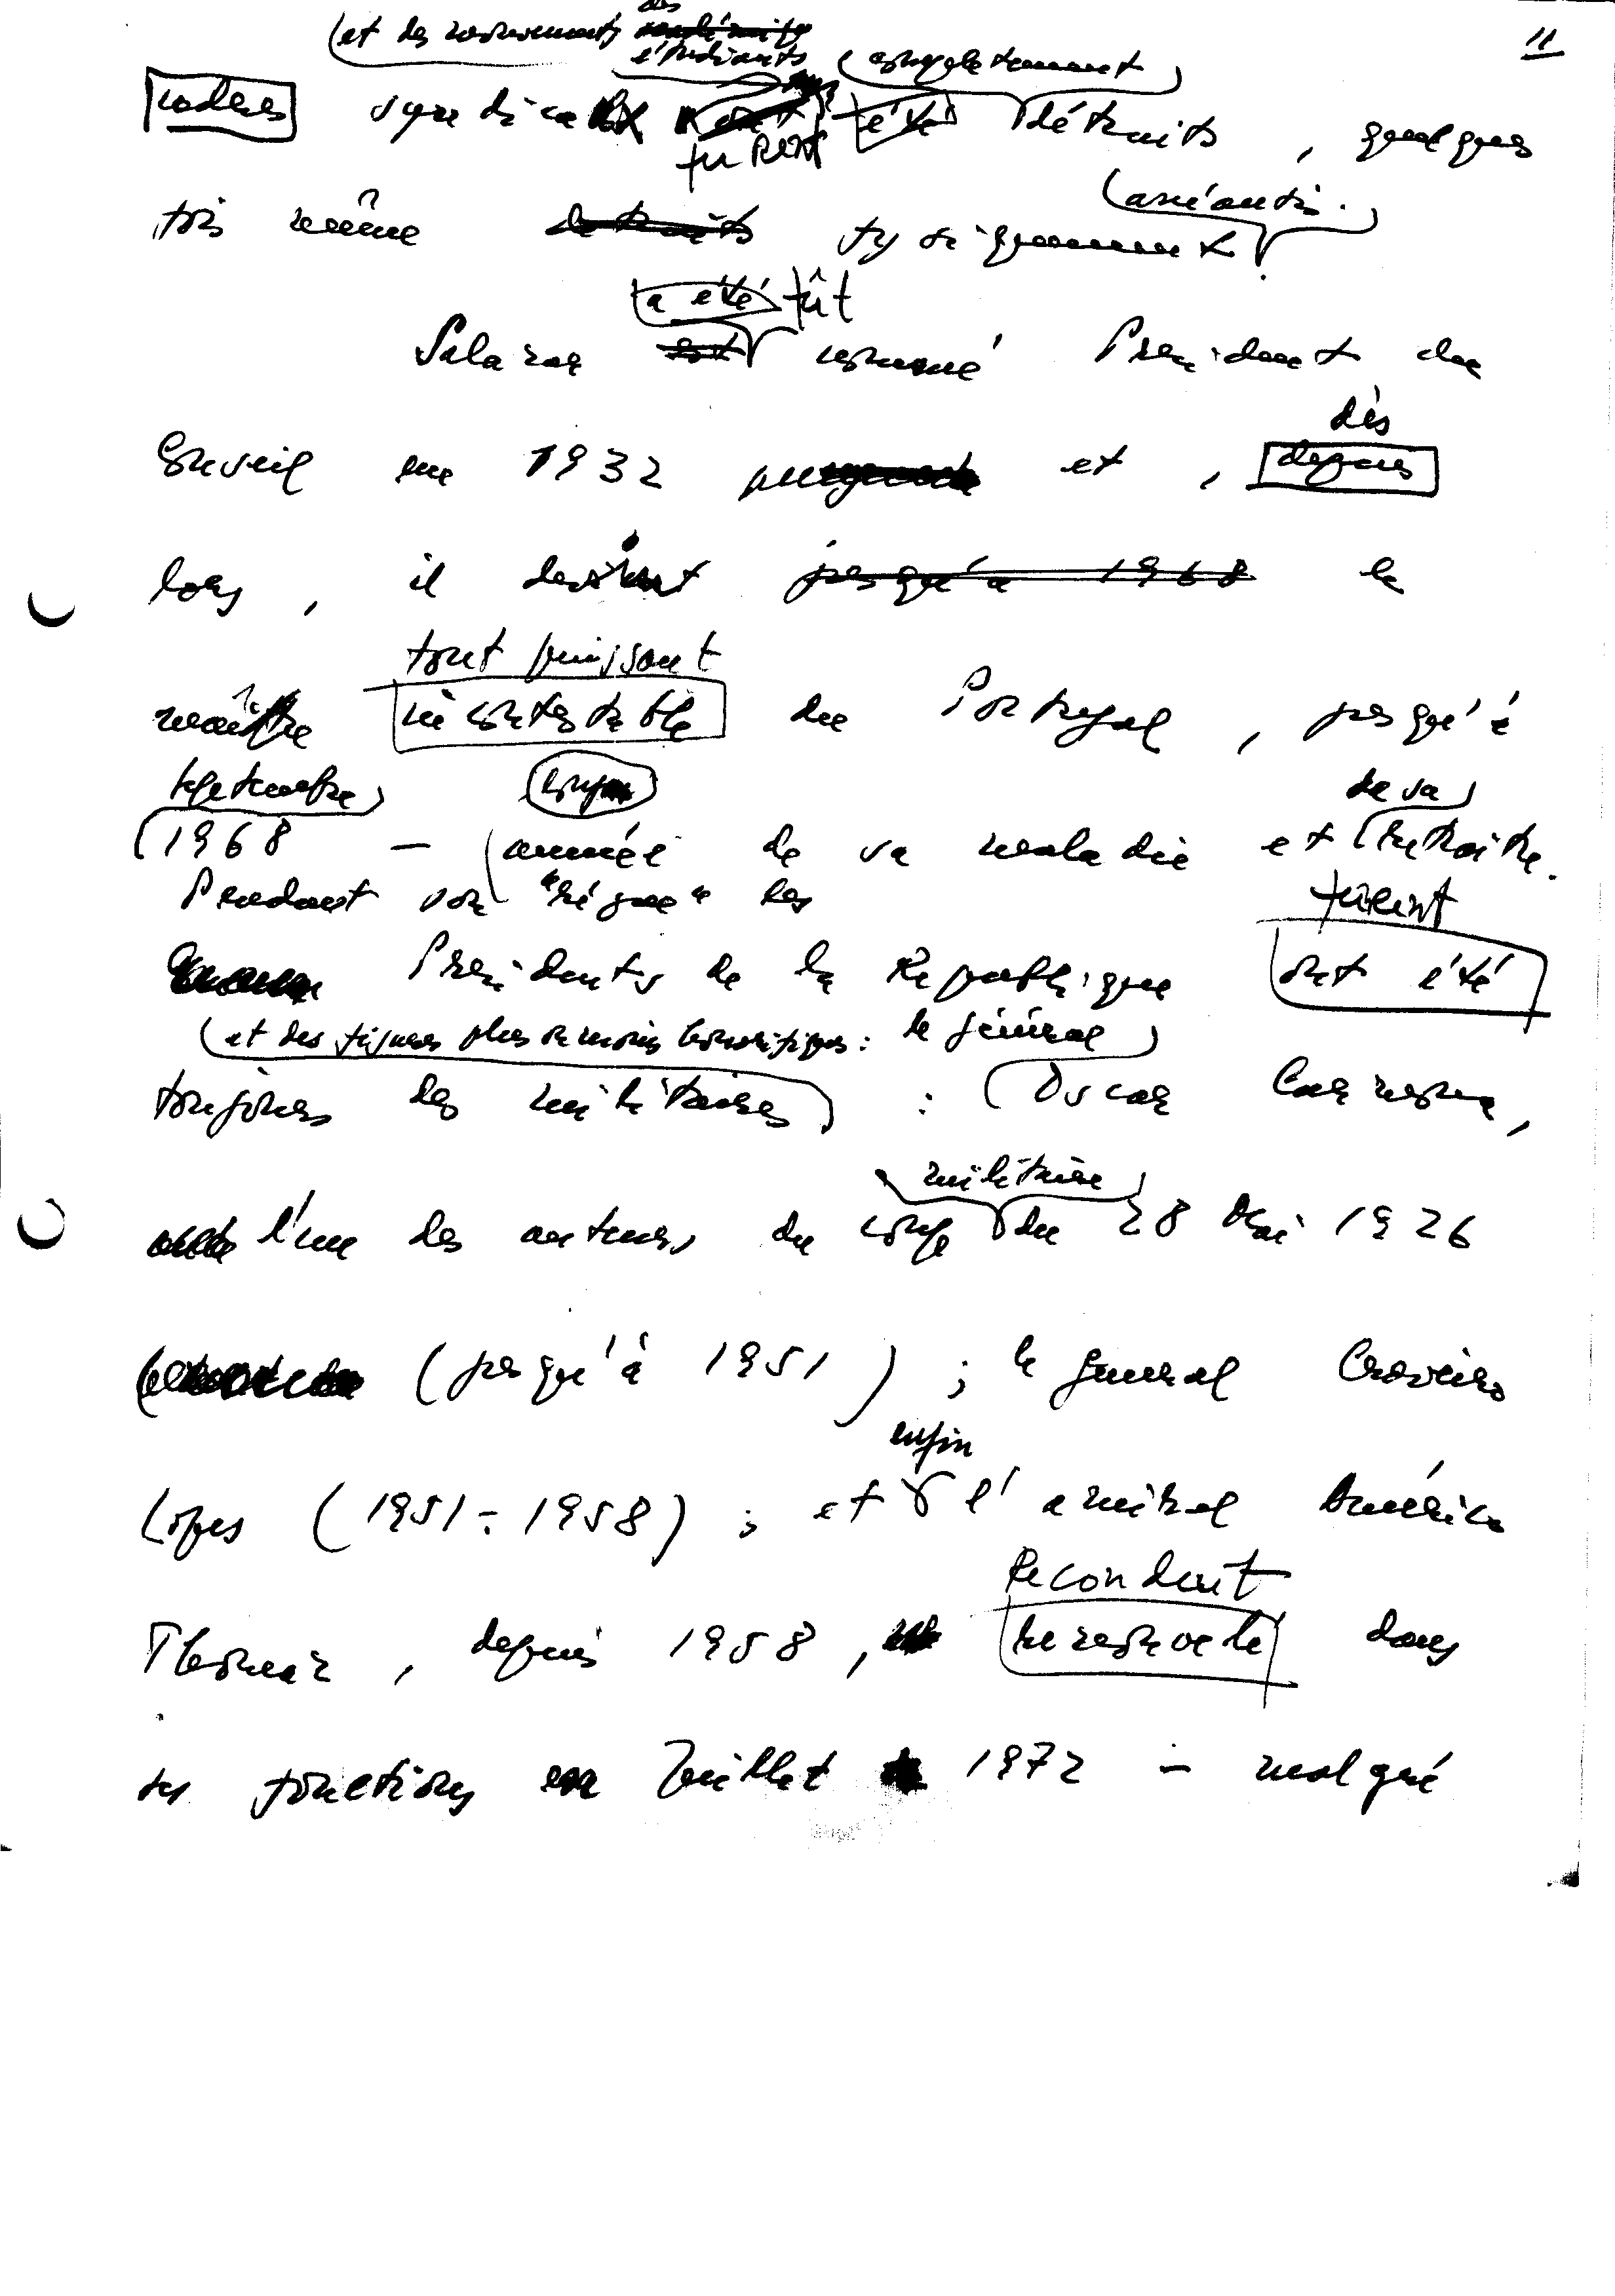 11
des
(et des mouvements étudiants (complètement)
cadres syndicaux furent été détruits, quelques
(anéantis.
fois même détruits physiquement
a été fût
Salazar est nommé Président du
dès
Conseil en 1932 et, depuis
lors, il devint jusqu'à 1968 le
tout puissant
maître incontestable du Portugal, jusqu'à
septembre de sa
1968 – année de sa maladie et retraite.
Pendant son "règne" les furent
Présidents de la République ont été
(et des figures plus ou moins honorifiques: le général
toujours des militaires : Oscar Carmona,
militaire
l'un des auteurs du coup du 28 Mai 1926
(jusqu'à 1951) ; le général Craveiro
enfin
Lopes (1951-1958) ; et l'amiral Américo
Reconduit
Thomaz, depuis 1958, renouvelé dans
ses fonctions en Juillet 1972 – malgré